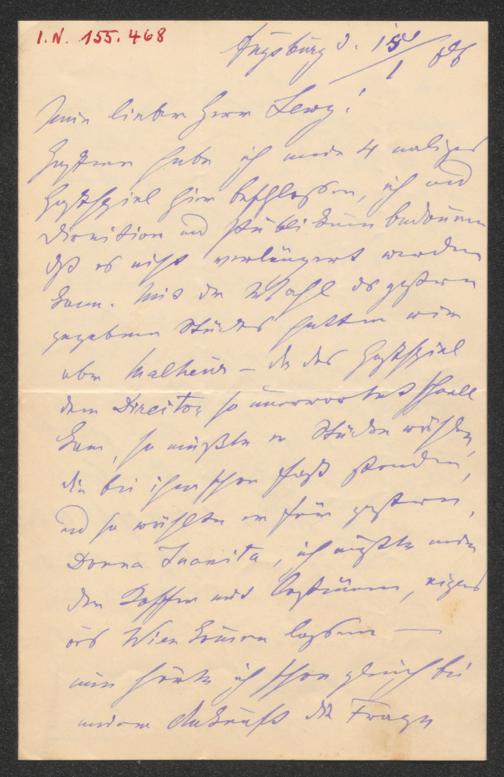 I.N. 155.468
Augsburg d. 15/1 86
Mein lieber Herr Lewy!
Gestern habe ich mein 4 maliges
Gastspiel hier beschlossen, ich und
Direction und Publikum bedauern
daß es nicht verlängert werden
kann. Mit der Wahl des gestern
gegebenen Stückes hatten wir
aber Malheur – da das Gastspiel
dem Director so unerwartet schnell
kam, so mußte er Stücke wählen,
die bei ihm schon fest standen,
und so wählte er für gestern,
Donna Juanita, ich mußte mir
den Koffer mit Costümen, eigens
aus Wien kommen lassen –
nun hörte ich schon gleich bei
meiner Ankunft die Frage